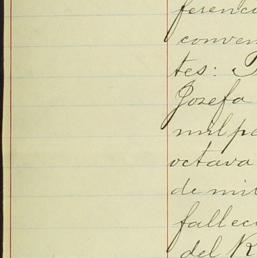 ferenci
conven
tes: 
Josefa
mil pe
octava
de mi
fallec
del R